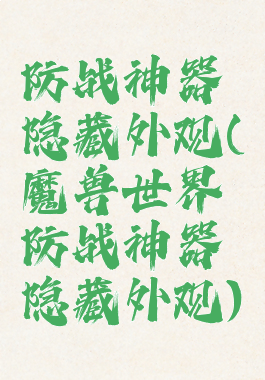 防战神器
隐藏外观(
魔兽世界
防战神器
隐藏外观)